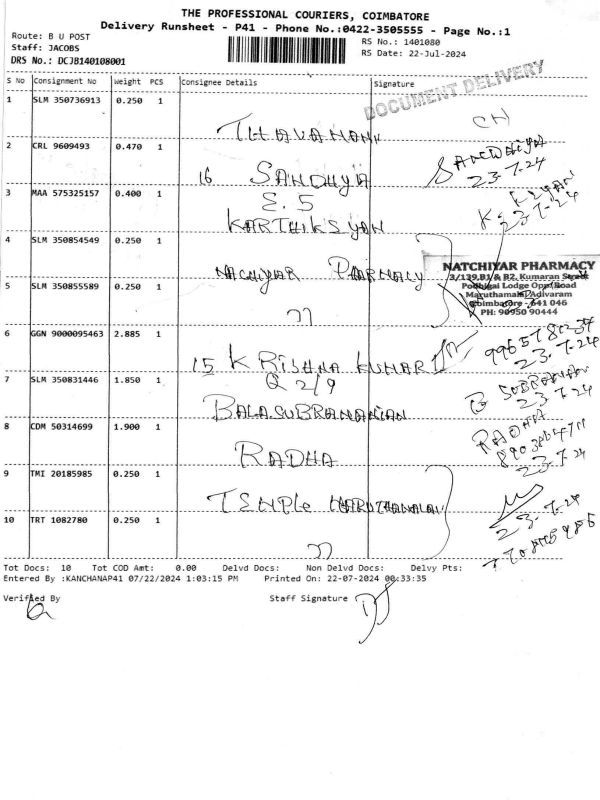 THE PROFESSIONAL COURIERS, COIMBATORE
Delivery Runsheet - P41 - Phone No.:0422-3505555 - Page No.:1
Route: B U POST
RS No.: 1401080
Staff: JACOBS
RS Date: 22-Jul-2024
DRS No.: DCJB140108001
S No Consignment No Weight PCS Consignee Details Signature
DOCUMENT DELIVERY
1 SLM 350736913 0.250 1
THAVAMANI CH
2 CRL 9609493 0.470 1
16 SANDHYA SANDHIYA
23-7-24
E.5
3 MAA 575325157 0.400 1
KARTHIKSYAN
23-7-24
4 SLM 350854549 0.250 1
NACHIYAR PHARMACY
NATCHIYAR PHARMACY
3/139,B1& B2, Kumaran Street
Podhigai Lodge Opp Road
Maruthamalai Adivaram
Coimbatore - 641 046
PH: 90950 90444
5 SLM 350855589 0.250 1
6 GGN 9000095463 2.885 1
15 KRISHNA KUMAR
23-7-24
Q 2/9
7 SLM 350831446 1.850 1
BALASUBRAMANIAN
23-7-24
8 CDM 50314699 1.900 1
RADHA RADHA
23-7-24
9 TMI 20185985 0.250 1
TEMPLE MARUTHAMALAI
23-7-24
10 TRT 1082780 0.250 1
Tot Docs: 10 Tot COD Amt: 0.00 Delvd Docs: Non Delvd Docs: Delvy Pts:
Entered By :KANCHANAP41 07/22/2024 1:03:15 PM Printed On: 22-07-2024 00:33:35
Verified By Staff Signature